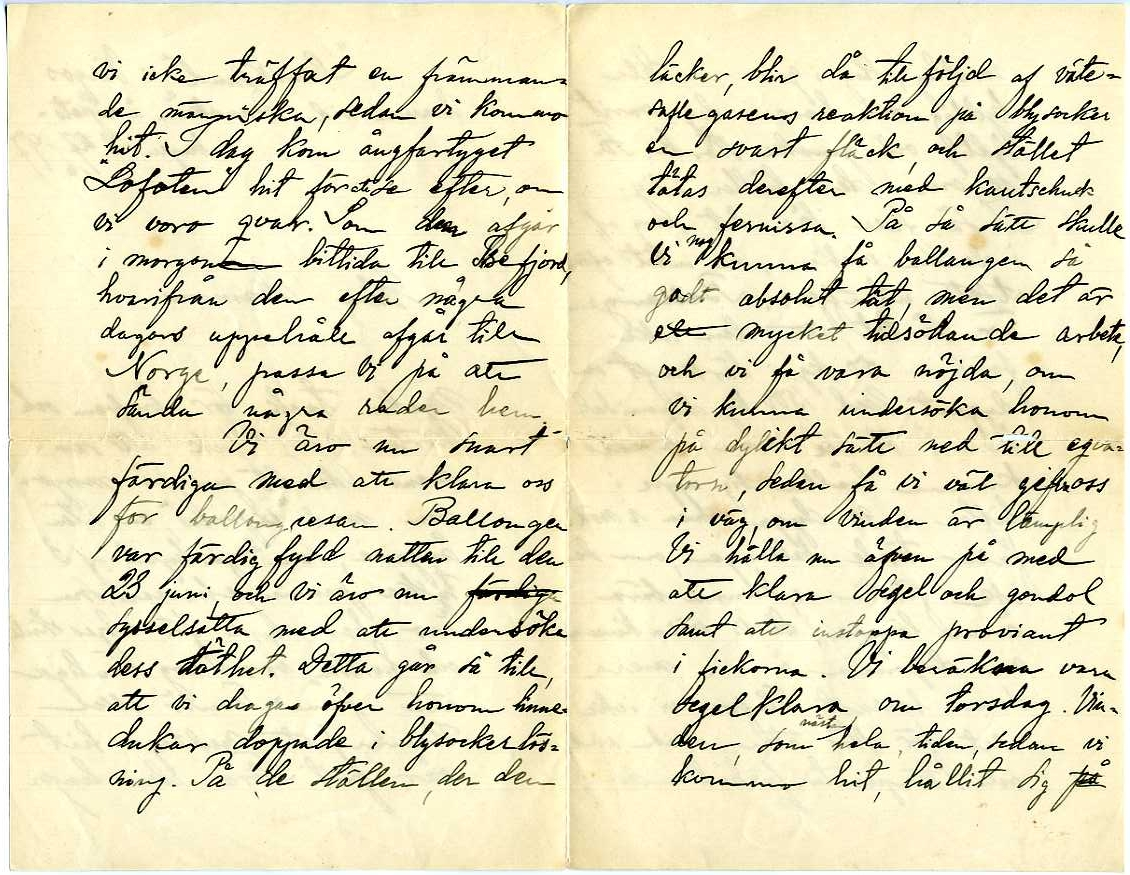 vi icke träffat en främman-
de människa, sedan vi kommo
hit. I dag kom ångfartyget
"Lofoten" hit för att se efter, om
vi voro qvar. Som den afgår
i morgon bittida till Isefjord,
hvarifrån den efter några
dagars uppehåll afgår till
Norge, passa vi på att
sända några rader hem.
Vi äro nu snart
färdiga med att klara oss
för ballongresan. Ballongen
var färdig fyld natten till den
23 juni, och vi äro nu färdiga
sysselsatta med att undersöka
dess täthet. Detta går så till,
att vi draga öfver honom linne-
dukar doppade i blysockerlös-
ning. På de ställen, der den
läcker, blir då till följd af väte-
svafle gasens reaktion på blysocker
en svart fläck, och stället
tätas derefter med kautschuk
och fernissa. På så sätt skulle
vi nog kunna få ballongen så
godt absolut tät, men det är
ett mycket tidsödande arbete,
och vi få vara nöjda, om
vi kunna undersöka honom
på dylikt sätt ned till eqva-
torn, sedan få vi väl gifva oss
i väg, om vinden är lämplig
Vi hålla nu äfven på med
att klara segel och gondol
samt att instoppa proviant
i fickorna. Vi beräkna vara
segelklara om torsdag. Vin-
den, som nästan hela tiden, sedan vi
kommo hit, hållit sig på